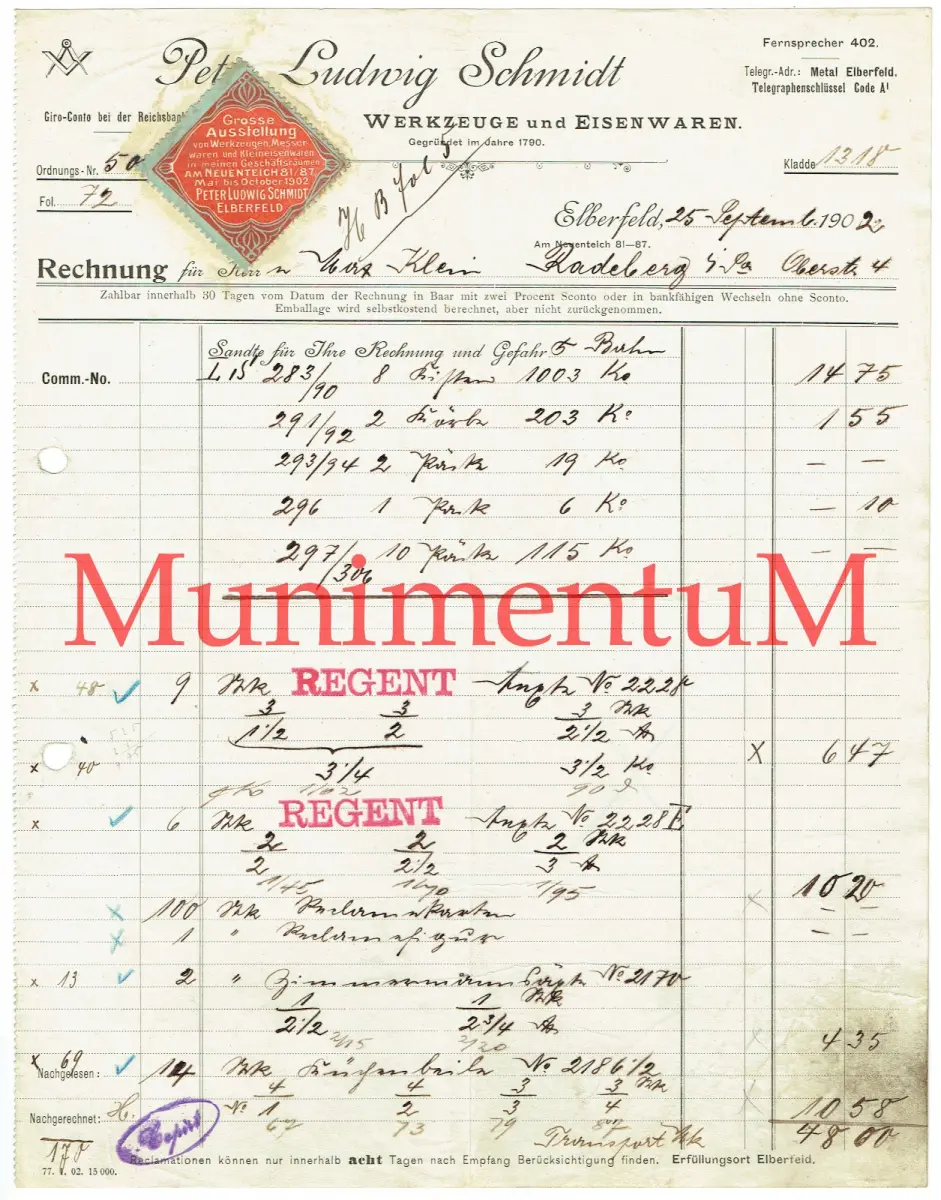 Fernsprecher 402.
Ludwig Schmidt
Telegr.-Adr.: Metal Elberfeld.
Telegraphenschlüssel Code A1
Giro-Conto bei der Reichsbank
WERKZEUGE und EISENWAREN.
Gegründet im Jahre 1790.
Grosse
Ausstellung
von Werkzeugen, Messer
waren und Kleineisenwaren
in meinen Geschäftsräumen
AM NEUENTEICH 81/87.
Mai bis October 1902
PETER LUDWIG SCHMIDT
ELBERFELD
Ordnungs-Nr. 50
Kladde 1318
Fol. 72
Elberfeld, 25 Septemb. 1902
Am Neuenteich 81—87.
Rechnung für Herrn Max Klein Radeberg i/Sa Oberstr. 4
Zahlbar innerhalb 30 Tagen vom Datum der Rechnung in Baar mit zwei Procent Sconto oder in bankfähigen Wechseln ohne Sconto.
Emballage wird selbstkostend berechnet, aber nicht zurückgenommen.
Sandte für Ihre Rechnung und Gefahr Bahn
Comm.-No.
LS 283/90 8 Kisten 1003 Ko 14 75
291/92 2 Körbe 203 Ko 1 55
293/94 2 Päckte 19 Ko — —
296 1 Pack 6 Ko — 10
297/306 10 Päckte 115 Ko — —
MunimentuM
x 48 9 Stk REGENT Aexte No 2228
3 3 3 Stk
1 1/2 2 2 1/2
x 40 3 1/4 3 1/2 Ko x 6 47
x 6 Stk REGENT Aexte No 2228E
2 2 2 Stk
2 2 1/2 3
1/45 1/70 1/95
10 20
100 Stk Reclamekarten — —
1 " Reclamefigur — —
x 13 2 " Zimmermannsäxte No 2170
1 1 Stk
2 1/2 2 3/4
4 35
x 69
Nachgelesen: 14 Stk Küchenbeile No 2186 1/2
4 4 3 3 Stk
No 1 2 3 4
73 79
10 58
Nachgerechnet: H.
Transport Mk 48 00
Copirt
178
Reclamationen können nur innerhalb acht Tagen nach Empfang Berücksichtigung finden. Erfüllungsort Elberfeld.
77. V. 02. 15 000.